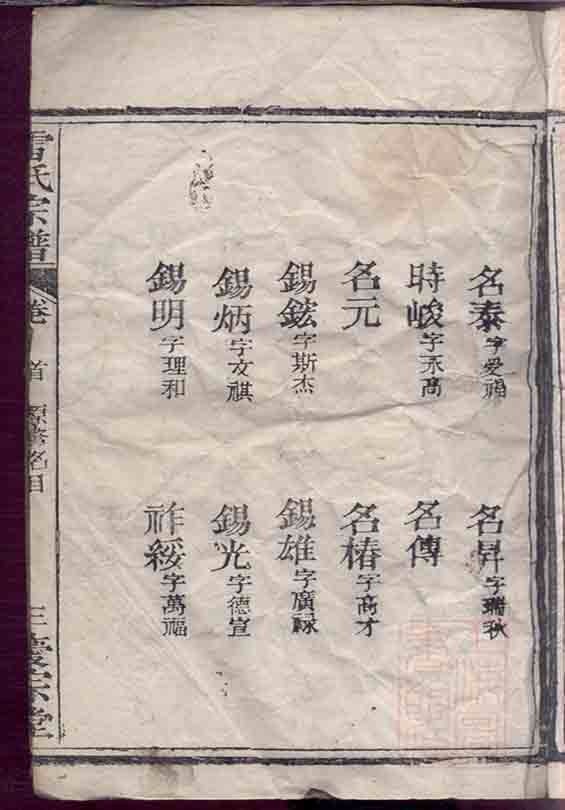 名泰字爱福
名昇字瑞秋
時峻字永高
名傳
名元
名椿字高才
錫鋐字斯杰
錫雄字廣祿
錫炳字文祺
錫光字德宣
錫明字理和
祚綏字萬福
雷氏宗譜
卷首
名目
三
慶宗堂